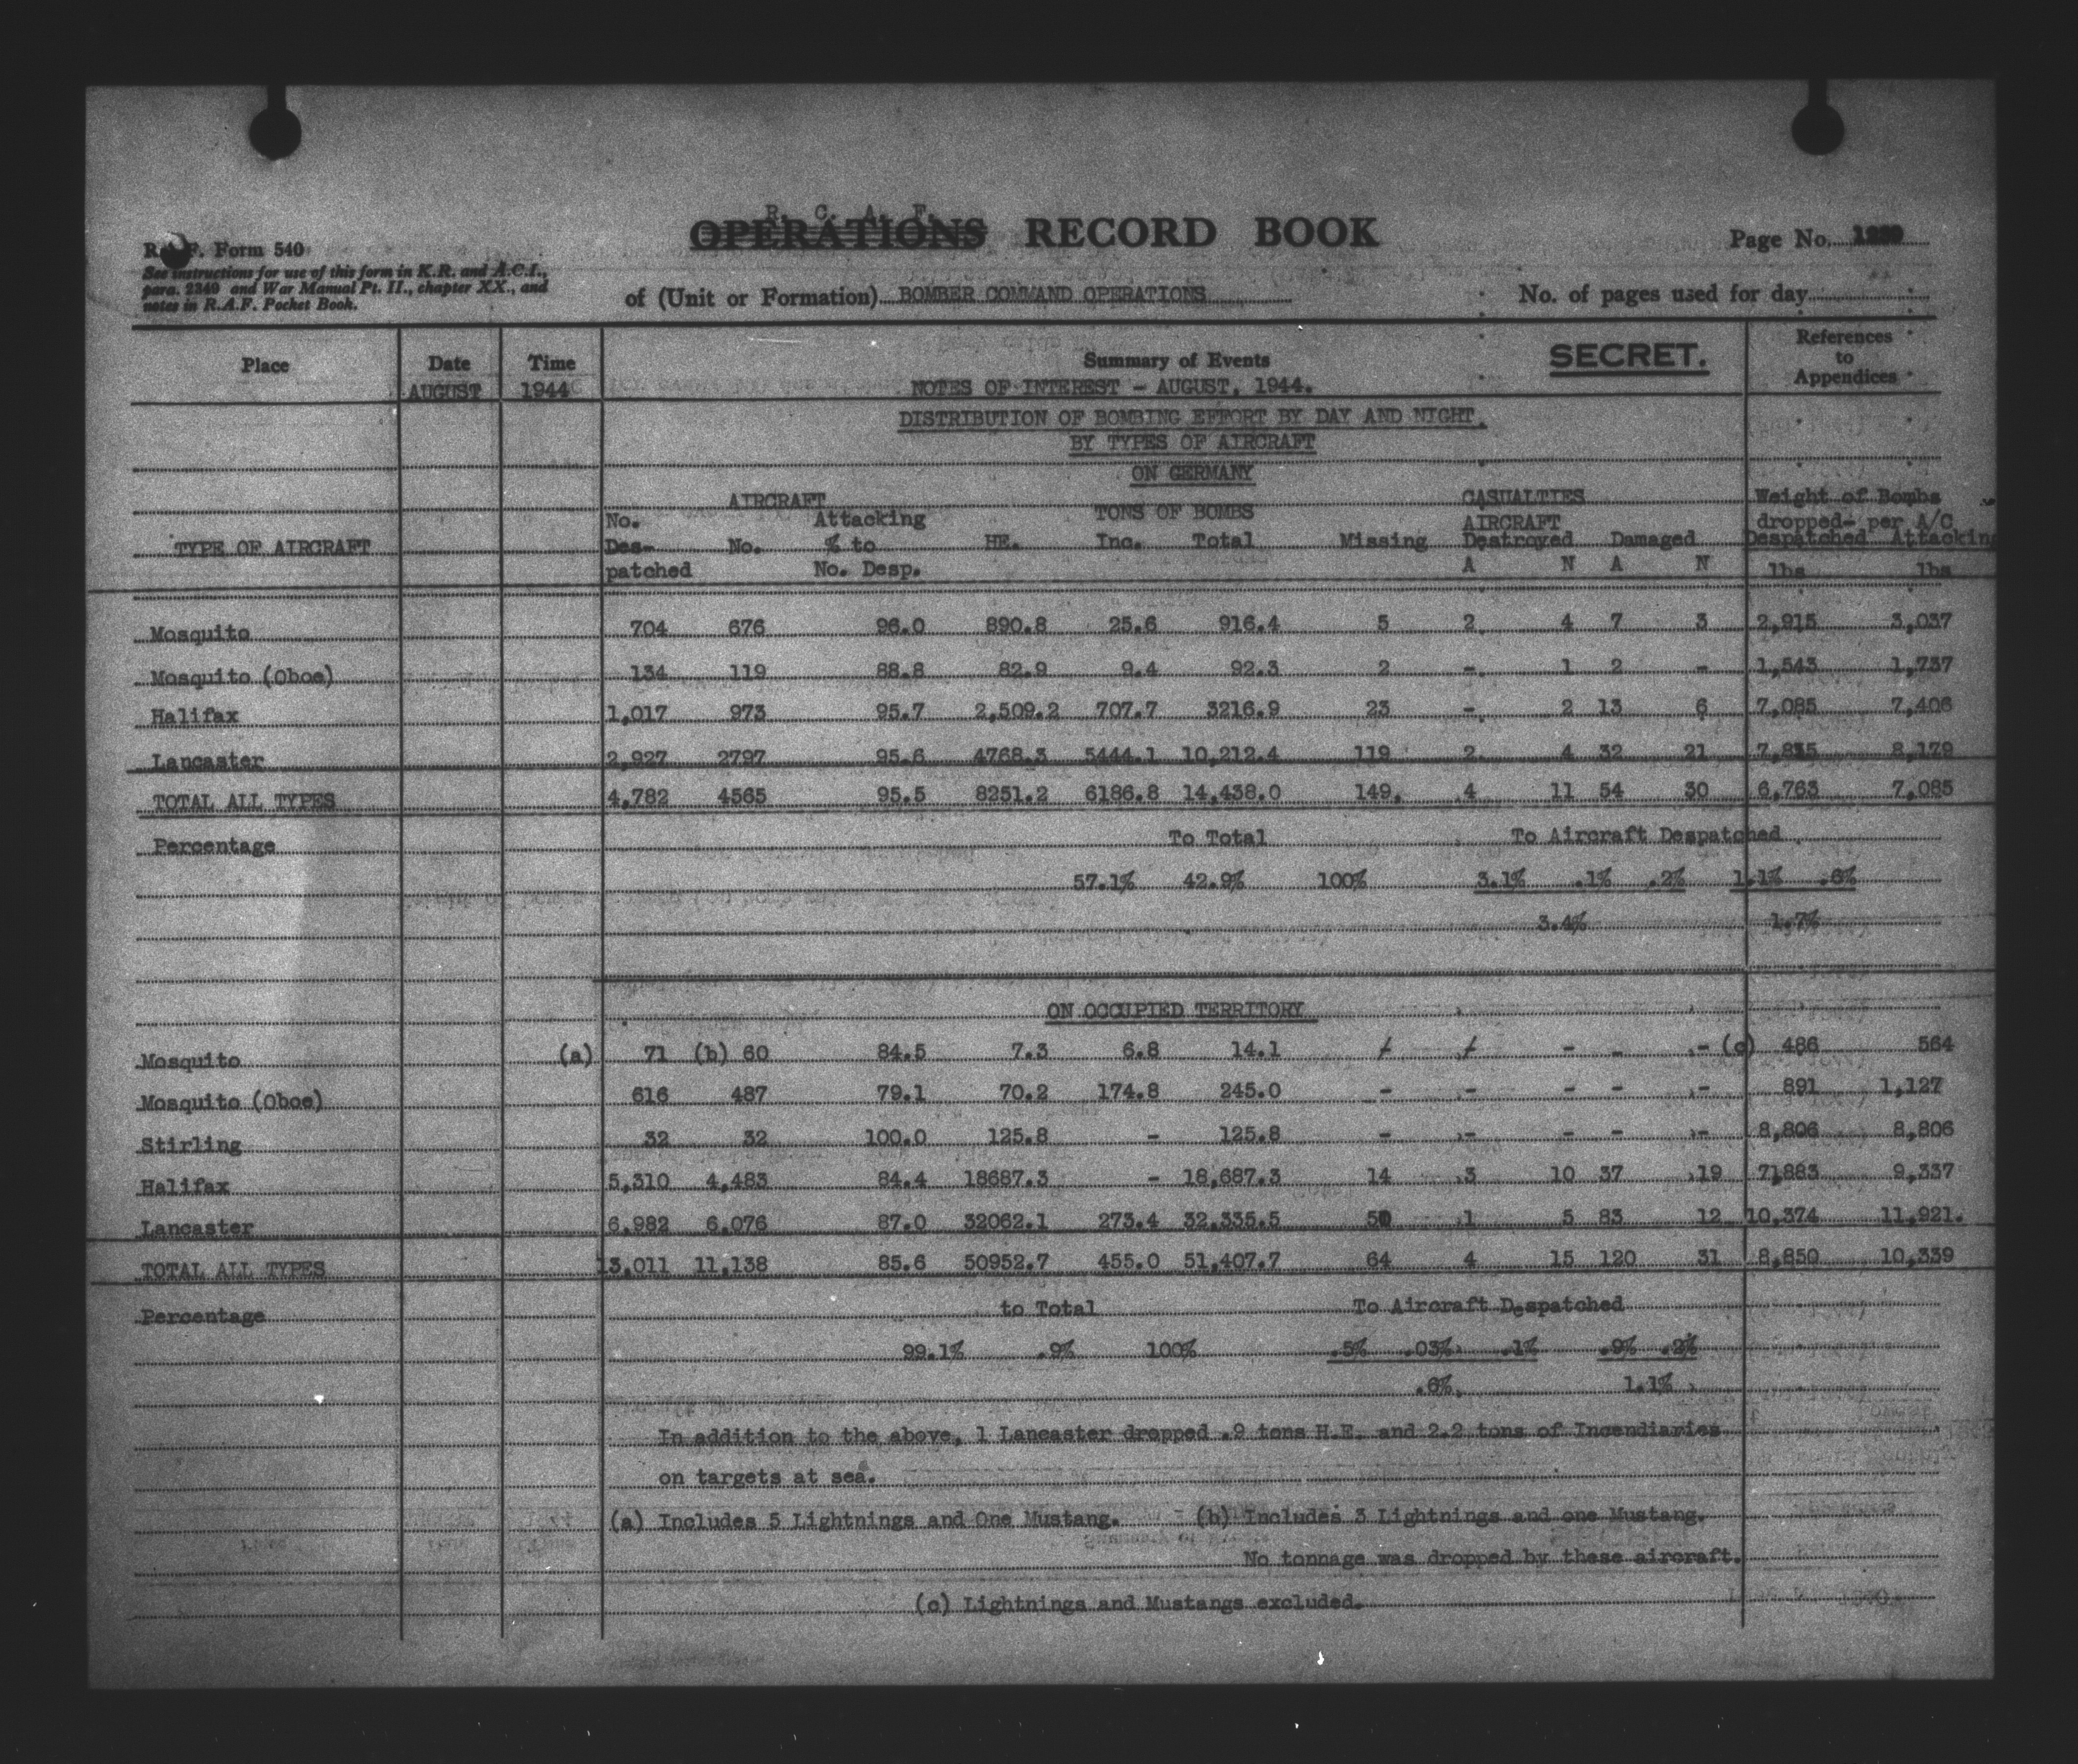 R. C. A. F.
OPERATIONS RECORD BOOK
R.A.F. Form 540
Page No.
See instructions for use of this form in K.R. and A.C.I.,
para. 2349 and War Manual Pt. II., chapter XX., and
notes in R.A.F. Pocket Book.
of (Unit or Formation) BOMBER COMMAND OPERATIONS
No. of pages used for day
Place Date Time Summary of Events SECRET. References to Appendices
AUGUST 1944 NOTES OF INTEREST - AUGUST, 1944.
DISTRIBUTION OF BOMBING EFFORT BY DAY AND NIGHT.
BY TYPES OF AIRCRAFT
ON GERMANY
AIRCRAFT CASUALTIES Weight of Bombs
No. Attacking TONS OF BOMBS AIRCRAFT dropped- per A/C
TYPE OF AIRCRAFT Des- No. % to HE. Inc. Total Missing Destroyed Damaged Despatched Attacking
patched No. Desp. A N A N lbs lbs
Mosquito 704 676 96.0 890.8 25.6 916.4 5 2 4 7 3 2,915 3,037
Mosquito (Oboe) 134 119 88.8 82.9 9.4 92.3 2 - 1 2 - 1,543 1,737
Halifax 1,017 973 95.7 2,509.2 707.7 3216.9 23 - 2 13 6 7,085 7,406
Lancaster 2,927 2797 95.6 4768.3 5444.1 10,212.4 119 2 4 32 21 7,815 8,179
TOTAL ALL TYPES 4,782 4565 95.5 8251.2 6186.8 14,438.0 149. 4 11 54 30 6,763 7,085
Percentage To Total To Aircraft Despatched
57.1% 42.9% 100% 3.1% .1% .2% 1.1% .6%
3.4% 1.7%
ON OCCUPIED TERRITORY
Mosquito (a) 71 (b) 60 84.5 7.3 6.8 14.1 / / - - - (c) 486 564
Mosquito (Oboe) 616 487 79.1 70.2 174.8 245.0 - - - - - 891 1,127
Stirling 32 32 100.0 125.8 - 125.8 - - - - - 8,806 8,806
Halifax 5,310 4,483 84.4 18687.3 - 18,687.3 14 3 10 37 19 7,883 9,337
Lancaster 6,982 6,076 87.0 32062.1 273.4 32,335.5 50 1 5 83 12 10,374 11,921.
TOTAL ALL TYPES 13,011 11,138 85.6 50952.7 455.0 51,407.7 64 4 15 120 31 8,850 10,339
Percentage to Total To Aircraft Despatched
99.1% .9% 100% .5% .03% .1% .9% .2%
.6% 1.1%
In addition to the above, 1 Lancaster dropped .9 tons H.E. and 2.2 tons of Incendiaries
on targets at sea.
(a) Includes 5 Lightnings and One Mustang. - (b) Includes 3 Lightnings and one Mustang.
No tonnage was dropped by these aircraft.
(c) Lightnings and Mustangs excluded.